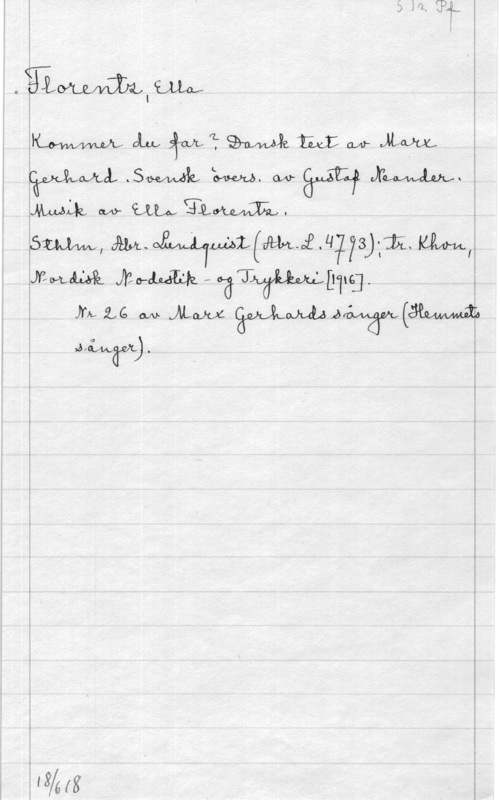 S 1r. Pf
Florentz, Ella
Kommer du far? Dansk text av Marx
Gerhard. Svensk övers. av Gustaf Neander.
Musik av Ella Florentz.
Sthlm, Abr. Lundquist (Abr. L. 4793); tr. Khvn,
Nordisk Nodestik- og Trykkeri [1916].
Nr 26 av Marx Gerhards sånger (Hemmets
sånger).
18/6 18